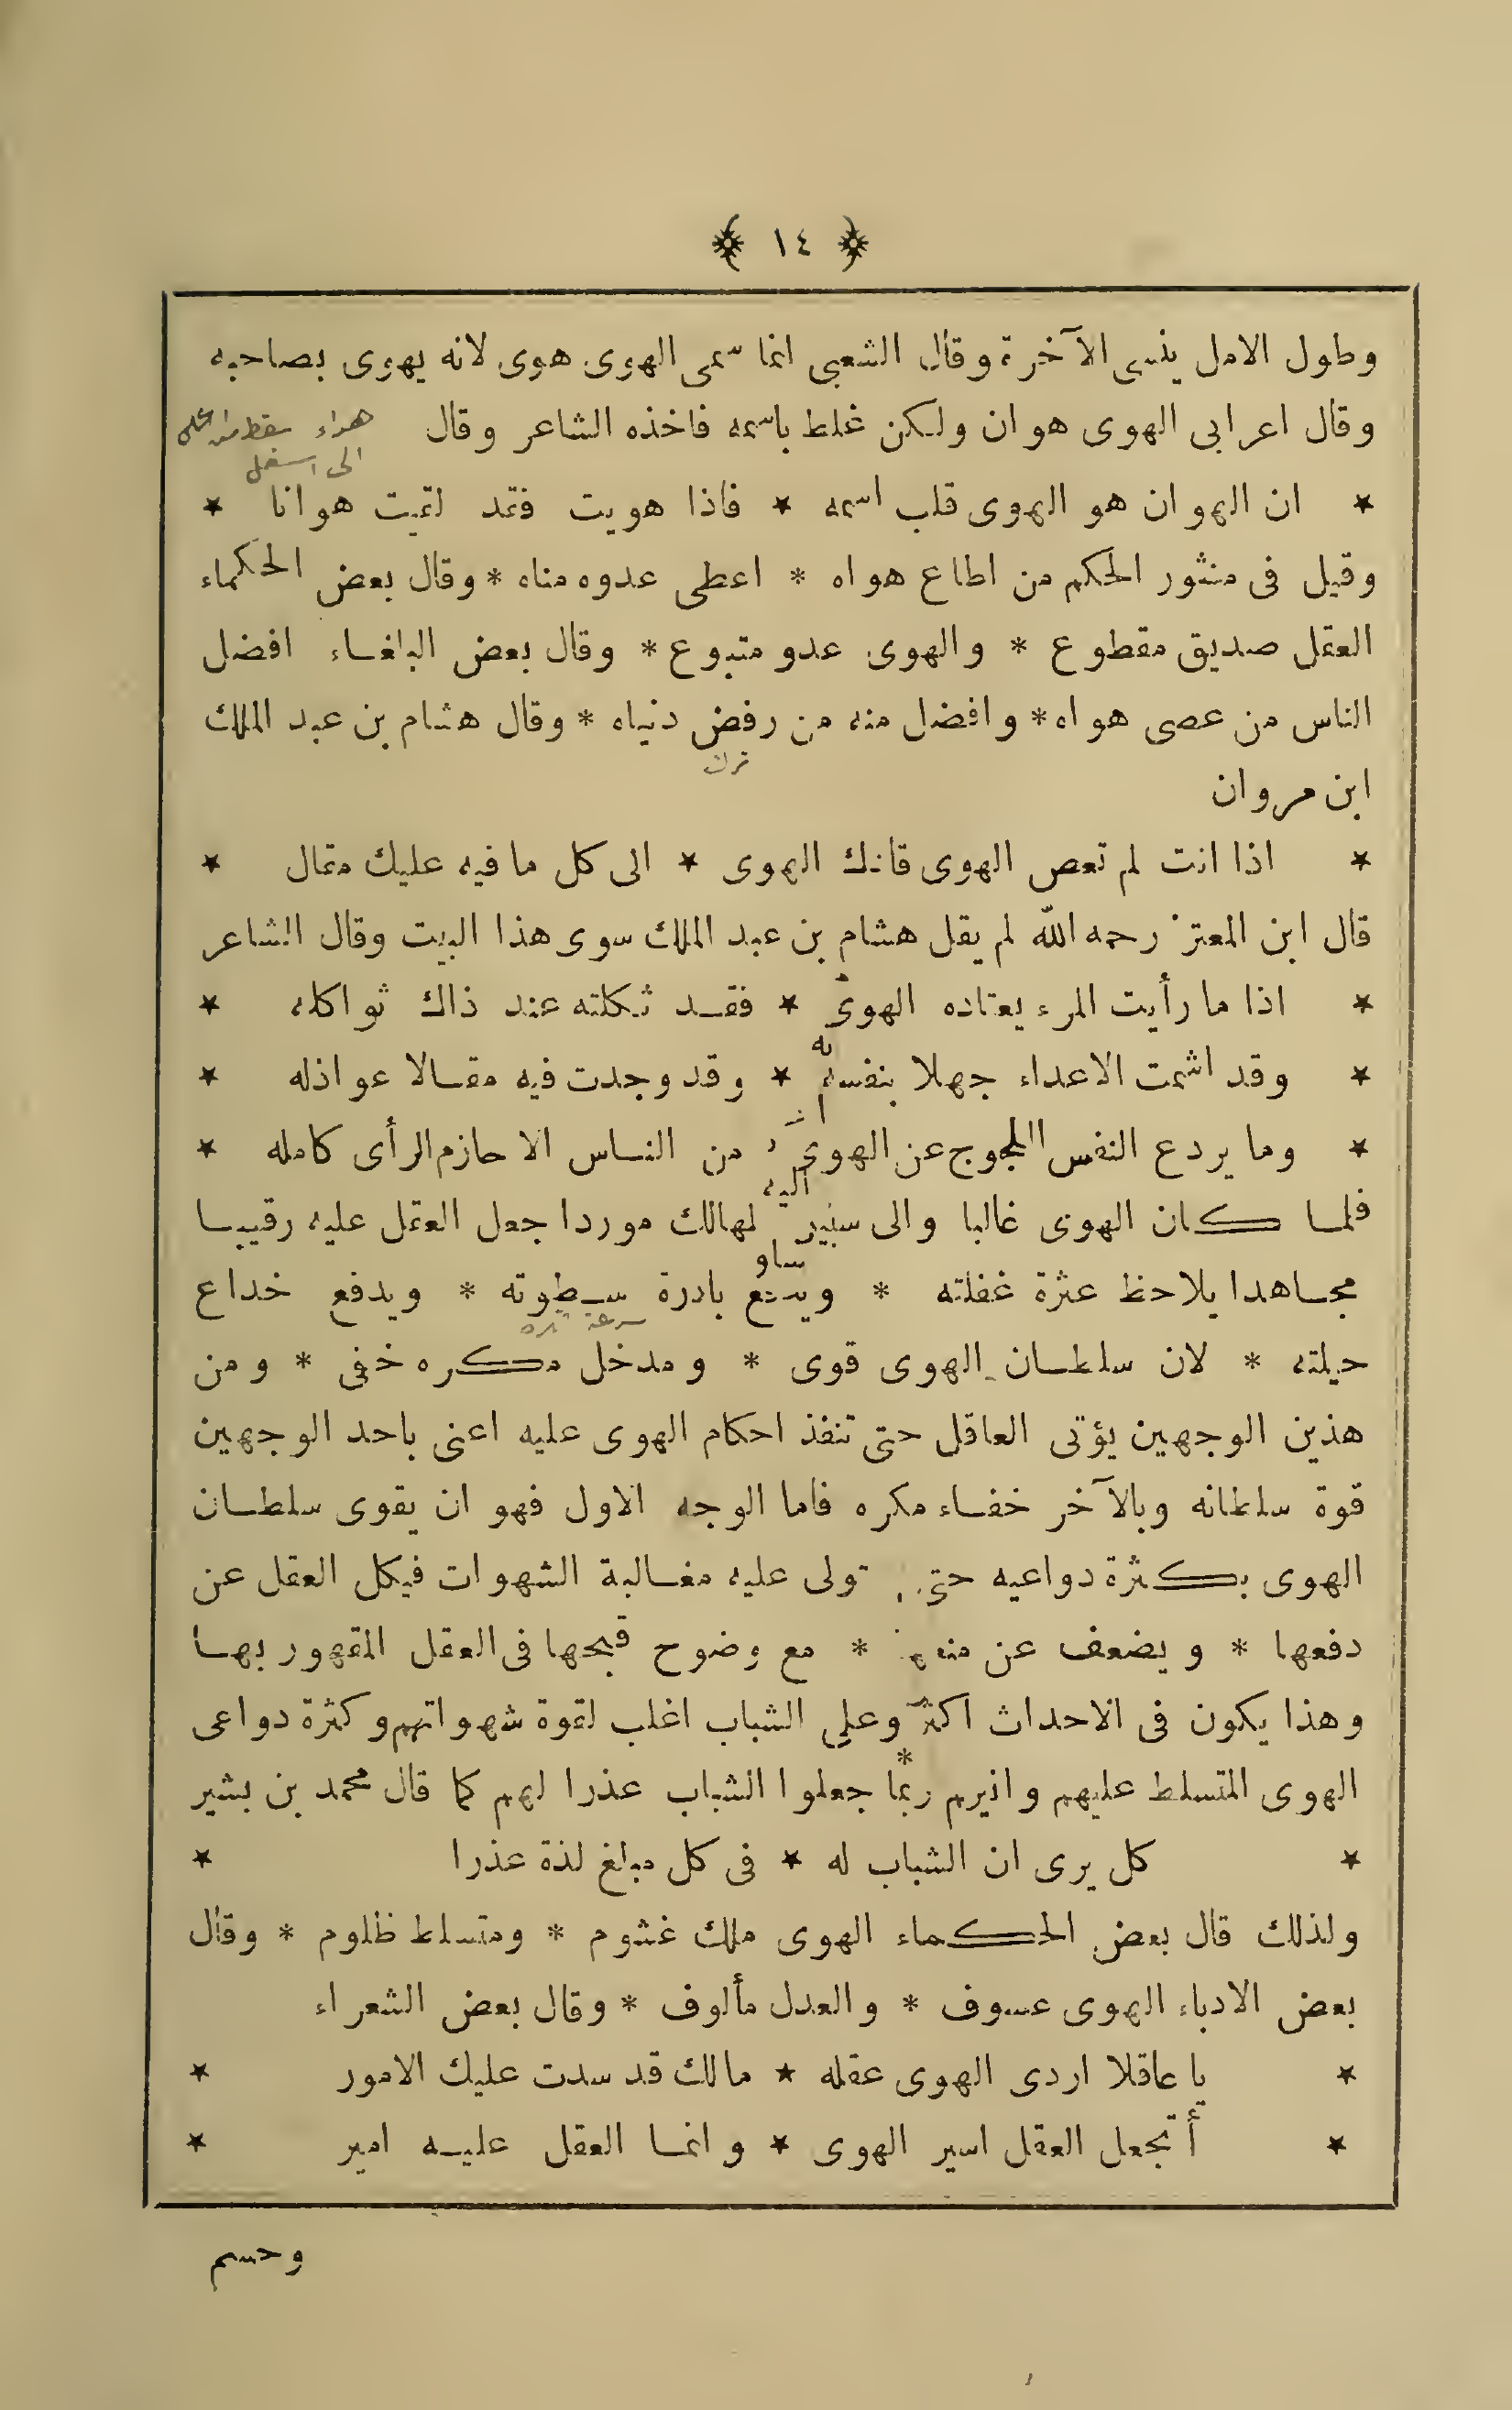 ﴿ ١٤ ﴾
وطول الامل ينسى الآخرة وقال الشعبى انما سمى الهوى هوى لانه يهوى بصاحبه
وقال اعرابى الهوى هوان ولكن غلط باسمه فاخذه الشاعر وقال
الى اسفل
★ ان الهوان هو الهوى قلب اسمه ★ فاذا هويت فقد لقيت هوانا ★
وقيل فى منثور الحكم من اطاع هواه * اعطى عدوه مناه * وقال بعض الحكماء
العقل صديق مقطوع * والهوى عدو متبوع * وقال بعض البلغاء افضل
الناس من عصى هواه * وافضل منه من رفض دنياه * وقال هشام بن عبد الملك
ترك
ابن مروان
★ اذا انت لم تعص الهوى قادك الهوى ★ الى كل ما فيه عليك مقال ★
قال ابن المعتز رحمه الله لم يقل هشام بن عبد الملك سوى هذا البيت وقال الشاعر
★ اذا ما رأيت المرء يعتاده الهوى ★ فقد ثكلته عند ذاك ثواكله ★
★ وقد اشمت الاعداء جهلا بنفسه ★ وقد وجدت فيه مقالا عواذله ★
★ وما يردع النفس اللجوج عن الهوى من الناس الا حازم الرأى كامله ★
فلما كان الهوى غالبا والى سبيل المهالك موردا جعل العقل عليه رقيبا
مجاهدا يلاحظ عثرة غفلته * ويدفع بادرة سطوته * ويدفع خداع
حيلته * لان سلطان الهوى قوى * ومدخل مكره خفى * ومن
هذين الوجهين يؤتى العاقل حتى تنفذ احكام الهوى عليه اعنى باحد الوجهين
قوة سلطانه وبالآخر خفاء مكره فاما الوجه الاول فهو ان يقوى سلطان
الهوى بكثرة دواعيه حتى تولى عليه مغالبة الشهوات فيكل العقل عن
دفعها * ويضعف عن منعها * مع وضوح قبحها فى العقل المقهور بها
وهذا يكون فى الاحداث اكثر وعلى الشباب اغلب لقوة شهواتهم وكثرة دواعى
الهوى المتسلط عليهم وانهم ربما جعلوا الشباب عذرا لهم كما قال محمد بن بشير
★ كل يرى ان الشباب له ★ فى كل مبلغ لذة عذرا ★
ولذلك قال بعض الحكماء الهوى ملك غشوم * ومتسلط ظلوم * وقال
بعض الادباء الهوى عسوف * والعدل مألوف * وقال بعض الشعراء
★ يا عاقلا اردى الهوى عقله ★ مالك قد سدت عليك الامور ★
★ أتجعل العقل اسير الهوى ★ وانما العقل عليه امير ★
وحسم